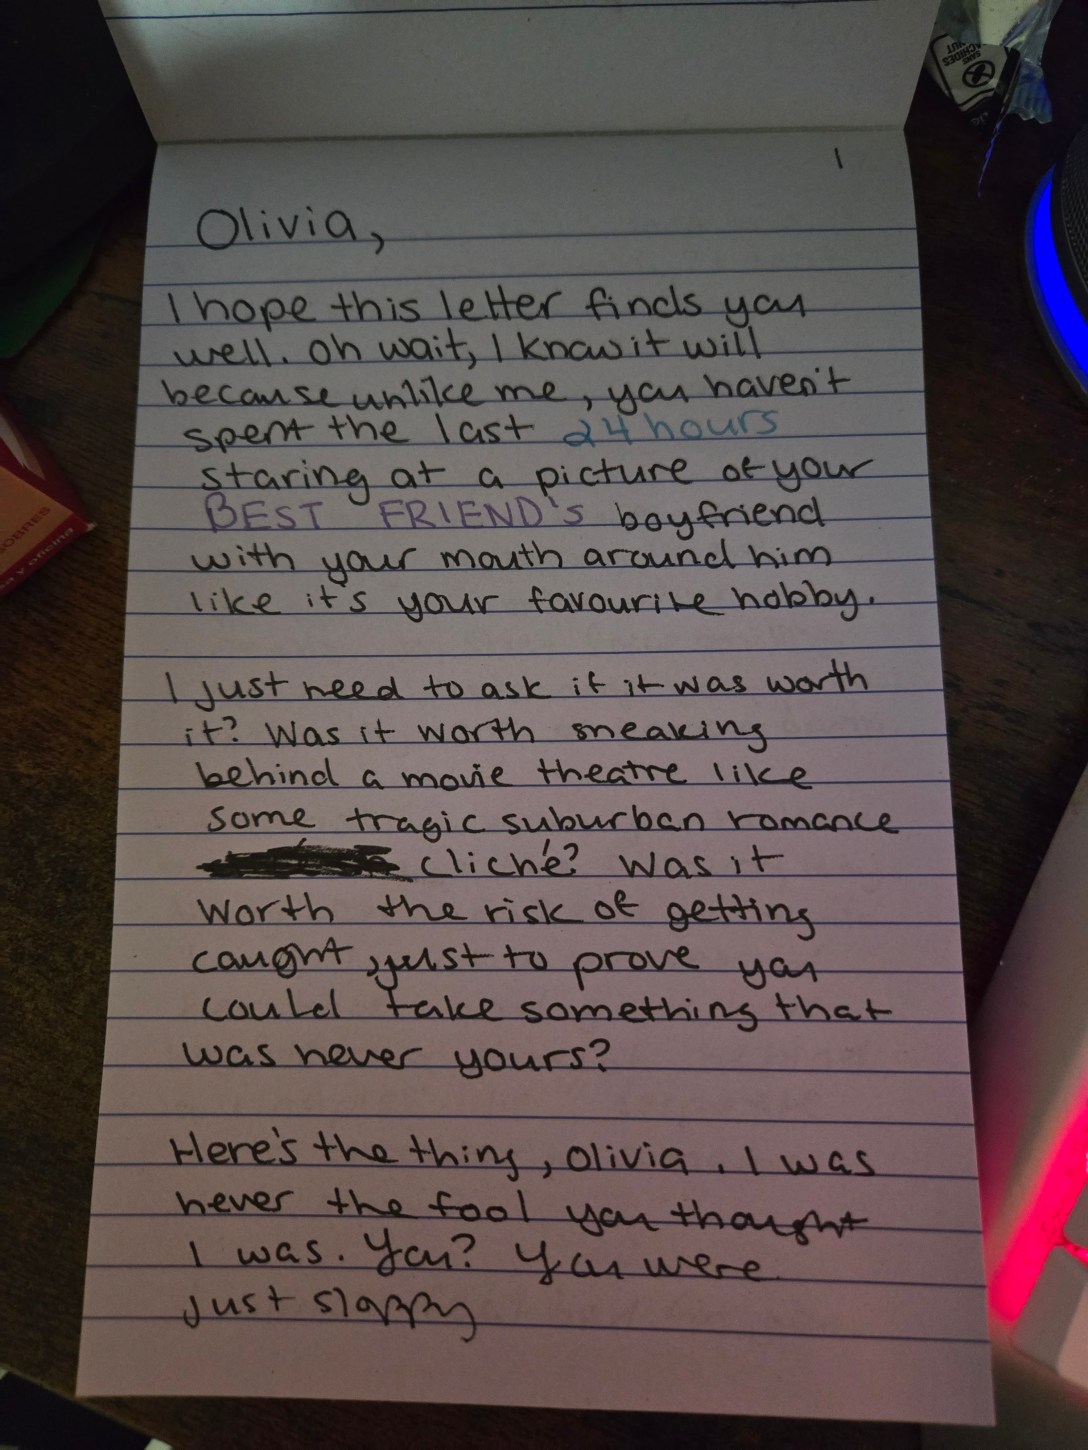 SANS
ARACHIDES
NUT
1
Olivia,
I hope this letter finds you
well. Oh wait, I know it will
because unlike me, you haven't
spent the last 24 hours
staring at a picture of your
BEST FRIEND'S boyfriend
with your mouth around him
like it's your favourite hobby.
I just need to ask if it was worth
it? Was it worth sneaking
behind a movie theatre like
some tragic suburban romance
cliché? Was it
worth the risk of getting
caught, just to prove you
could take something that
was never yours?
Here's the thing, Olivia. I was
never the fool you thought
I was. You? You were
just sloppy
SOBRES
y oficina